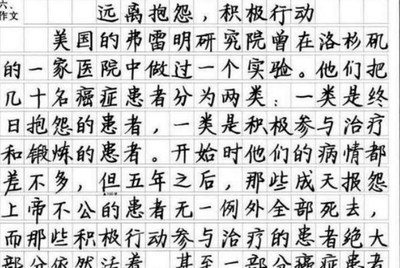 六、
作文
远离抱怨，积极行动
美国的弗雷明研究院曾在洛杉矶
的一家医院中做过一个实验。他们把
几十名癌症患者分为两类：一类是终
日抱怨的患者，一类是积极参与治疗
和锻炼的患者。开始时他们的病情都
差不多，但五年之后，那些成天报怨
上帝不公的患者无一例外全部死去，
而那些积极行动参与治疗的患者绝大
部分依然活着，甚至一部分癌症患者